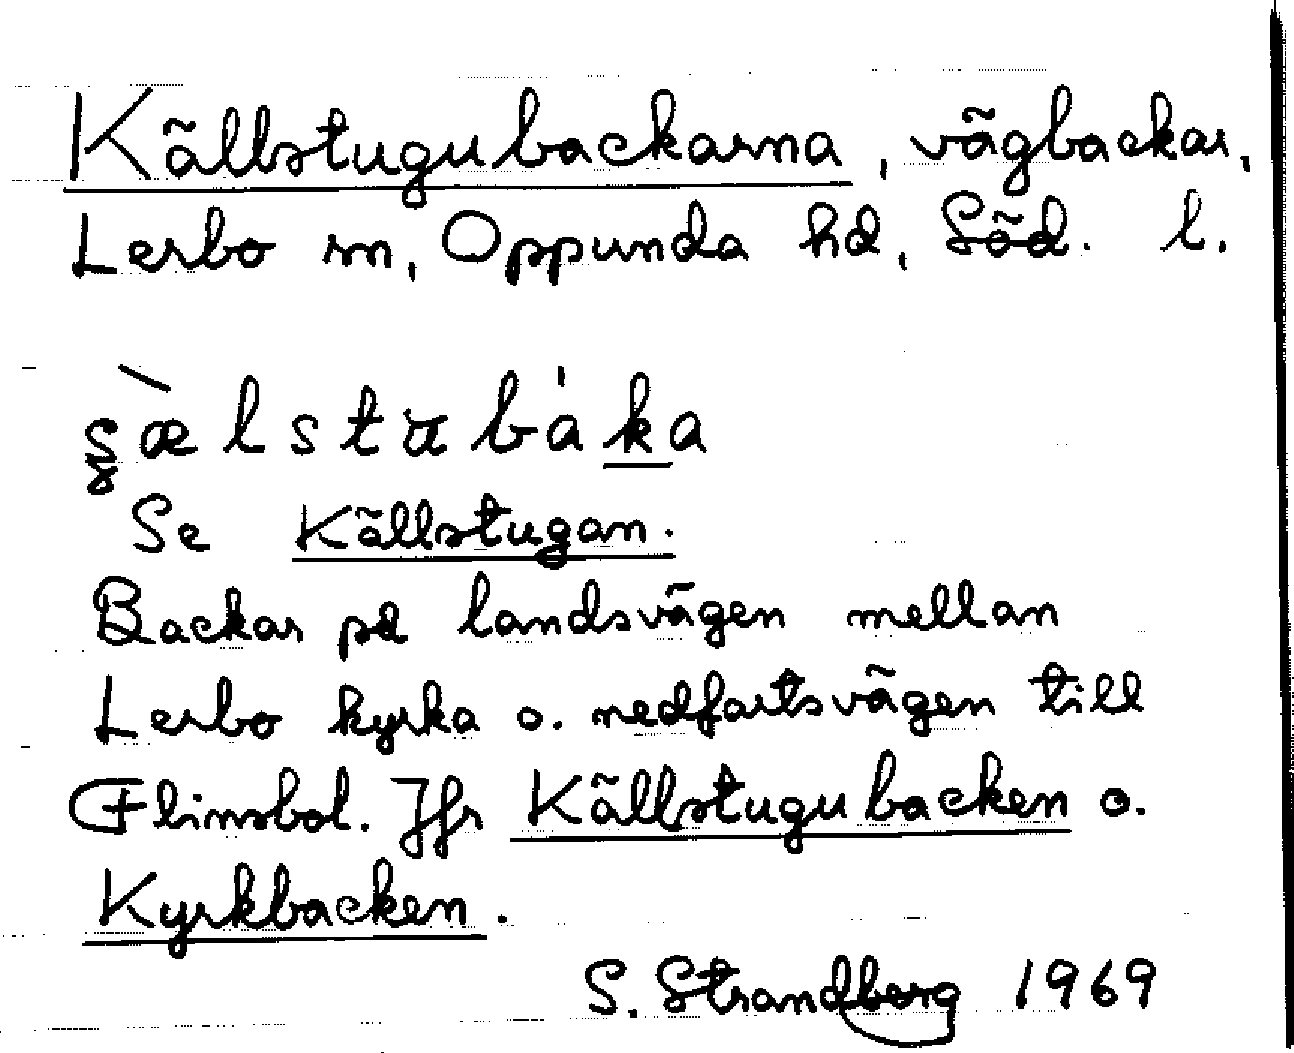 Källstugubackarna, vägbackar,
Lerbo sn, Oppunda hd, Söd. l.
s̨æ̀lstubáka
Se Källstugan.
Backar på landsvägen mellan
Lerbo kyrka o. nedfartsvägen till
Flinsbol. Jfr Källstugubacken o.
Kyrkbacken.
S. Strandberg 1969